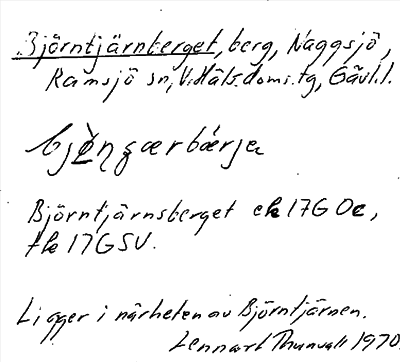 Björntjärnberget, berg, Naggsjö,
Ramsjö sn, V. Häls. doms. tg, Gävl. l.
Björntjärnsberget ek 17G 0c,
tk 17G SV.
Ligger i närheten av Björntjärnen.
Lennart Thunvall 1970.